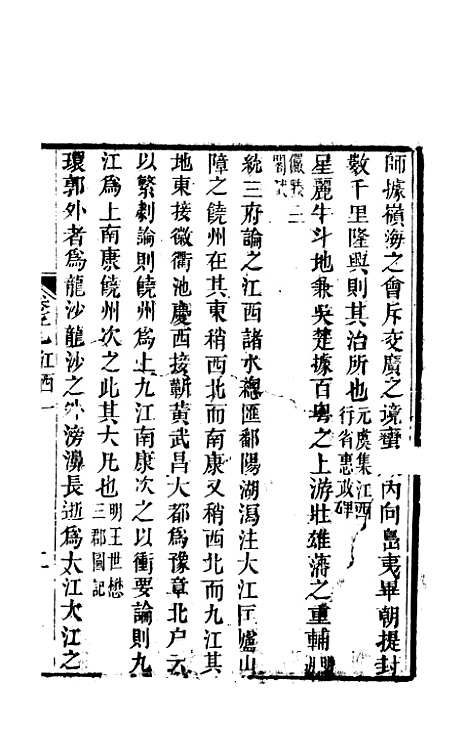 師據嶺海之會斥交廣之境蠻 內向島夷畢朝提封
數千里隆興則其治所也元虞集江西行省惠政碑
星麗牛斗地兼吳楚據百粵之上游壯雄藩之重輔
統三府論之江西諸水總匯鄱陽湖瀉注大江而廬山
障之饒州在其東稍西北而南康又稍西北而九江其
地東接徽衢池慶西接蘄黃武昌大都為豫章北户云
以繁劇論則饒州為上九江南康次之以衝要論則九
江為上南康饒州次之此其大凡也明王世懋三郡圖記
環郭外者為龍沙龍沙之外滂濞長逝為大江大江之
江西一